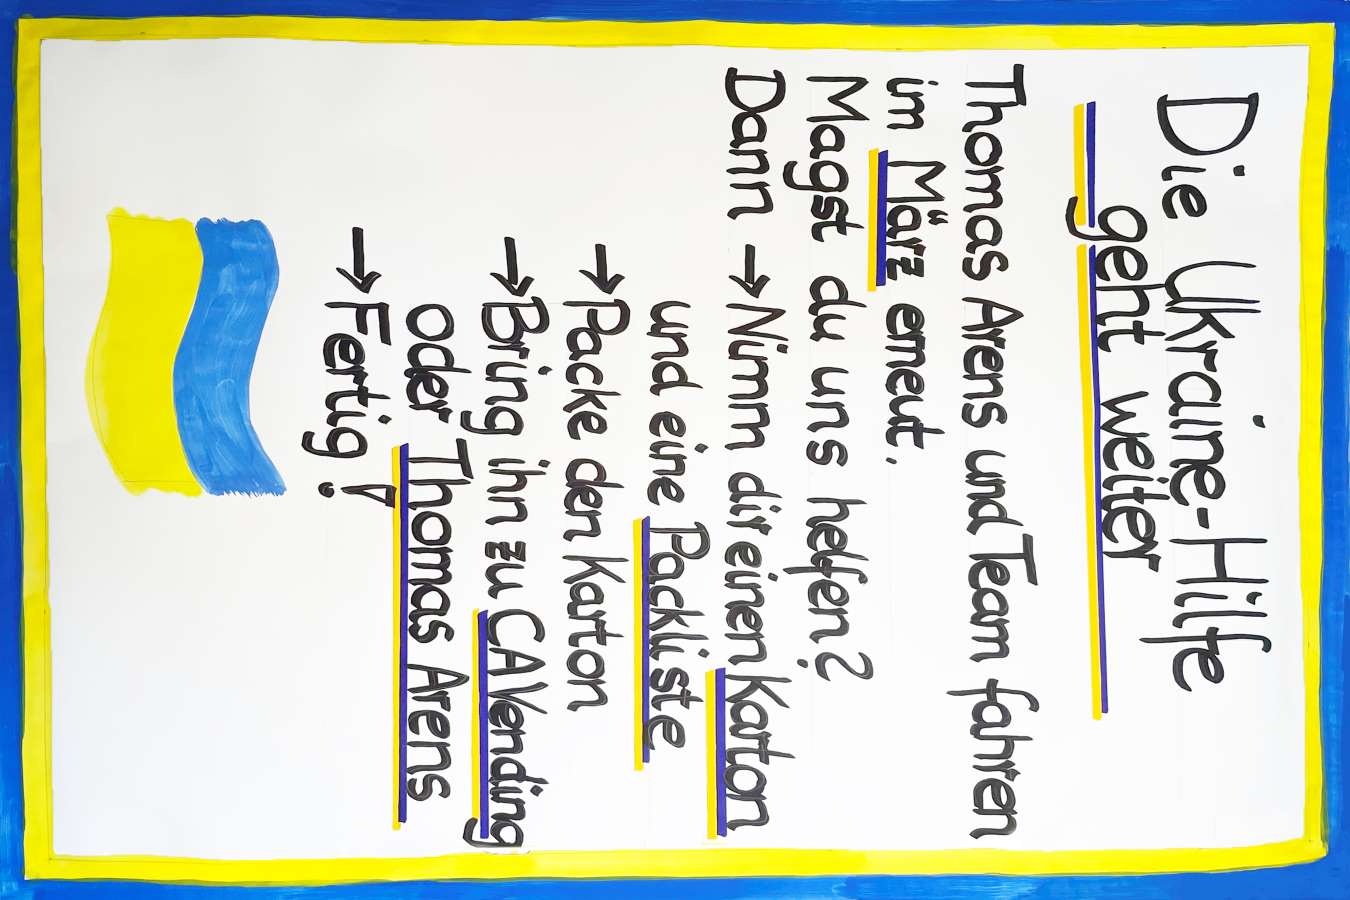 Die Ukraine-Hilfe
geht weiter
Thomas Arens und Team fahren
im März erneut.
Magst du uns helfen?
Dann → Nimm dir einen Karton
und eine Packliste
→ Packe den Karton
→ Bring ihn zu CAVending
oder Thomas Arens
→ Fertig!